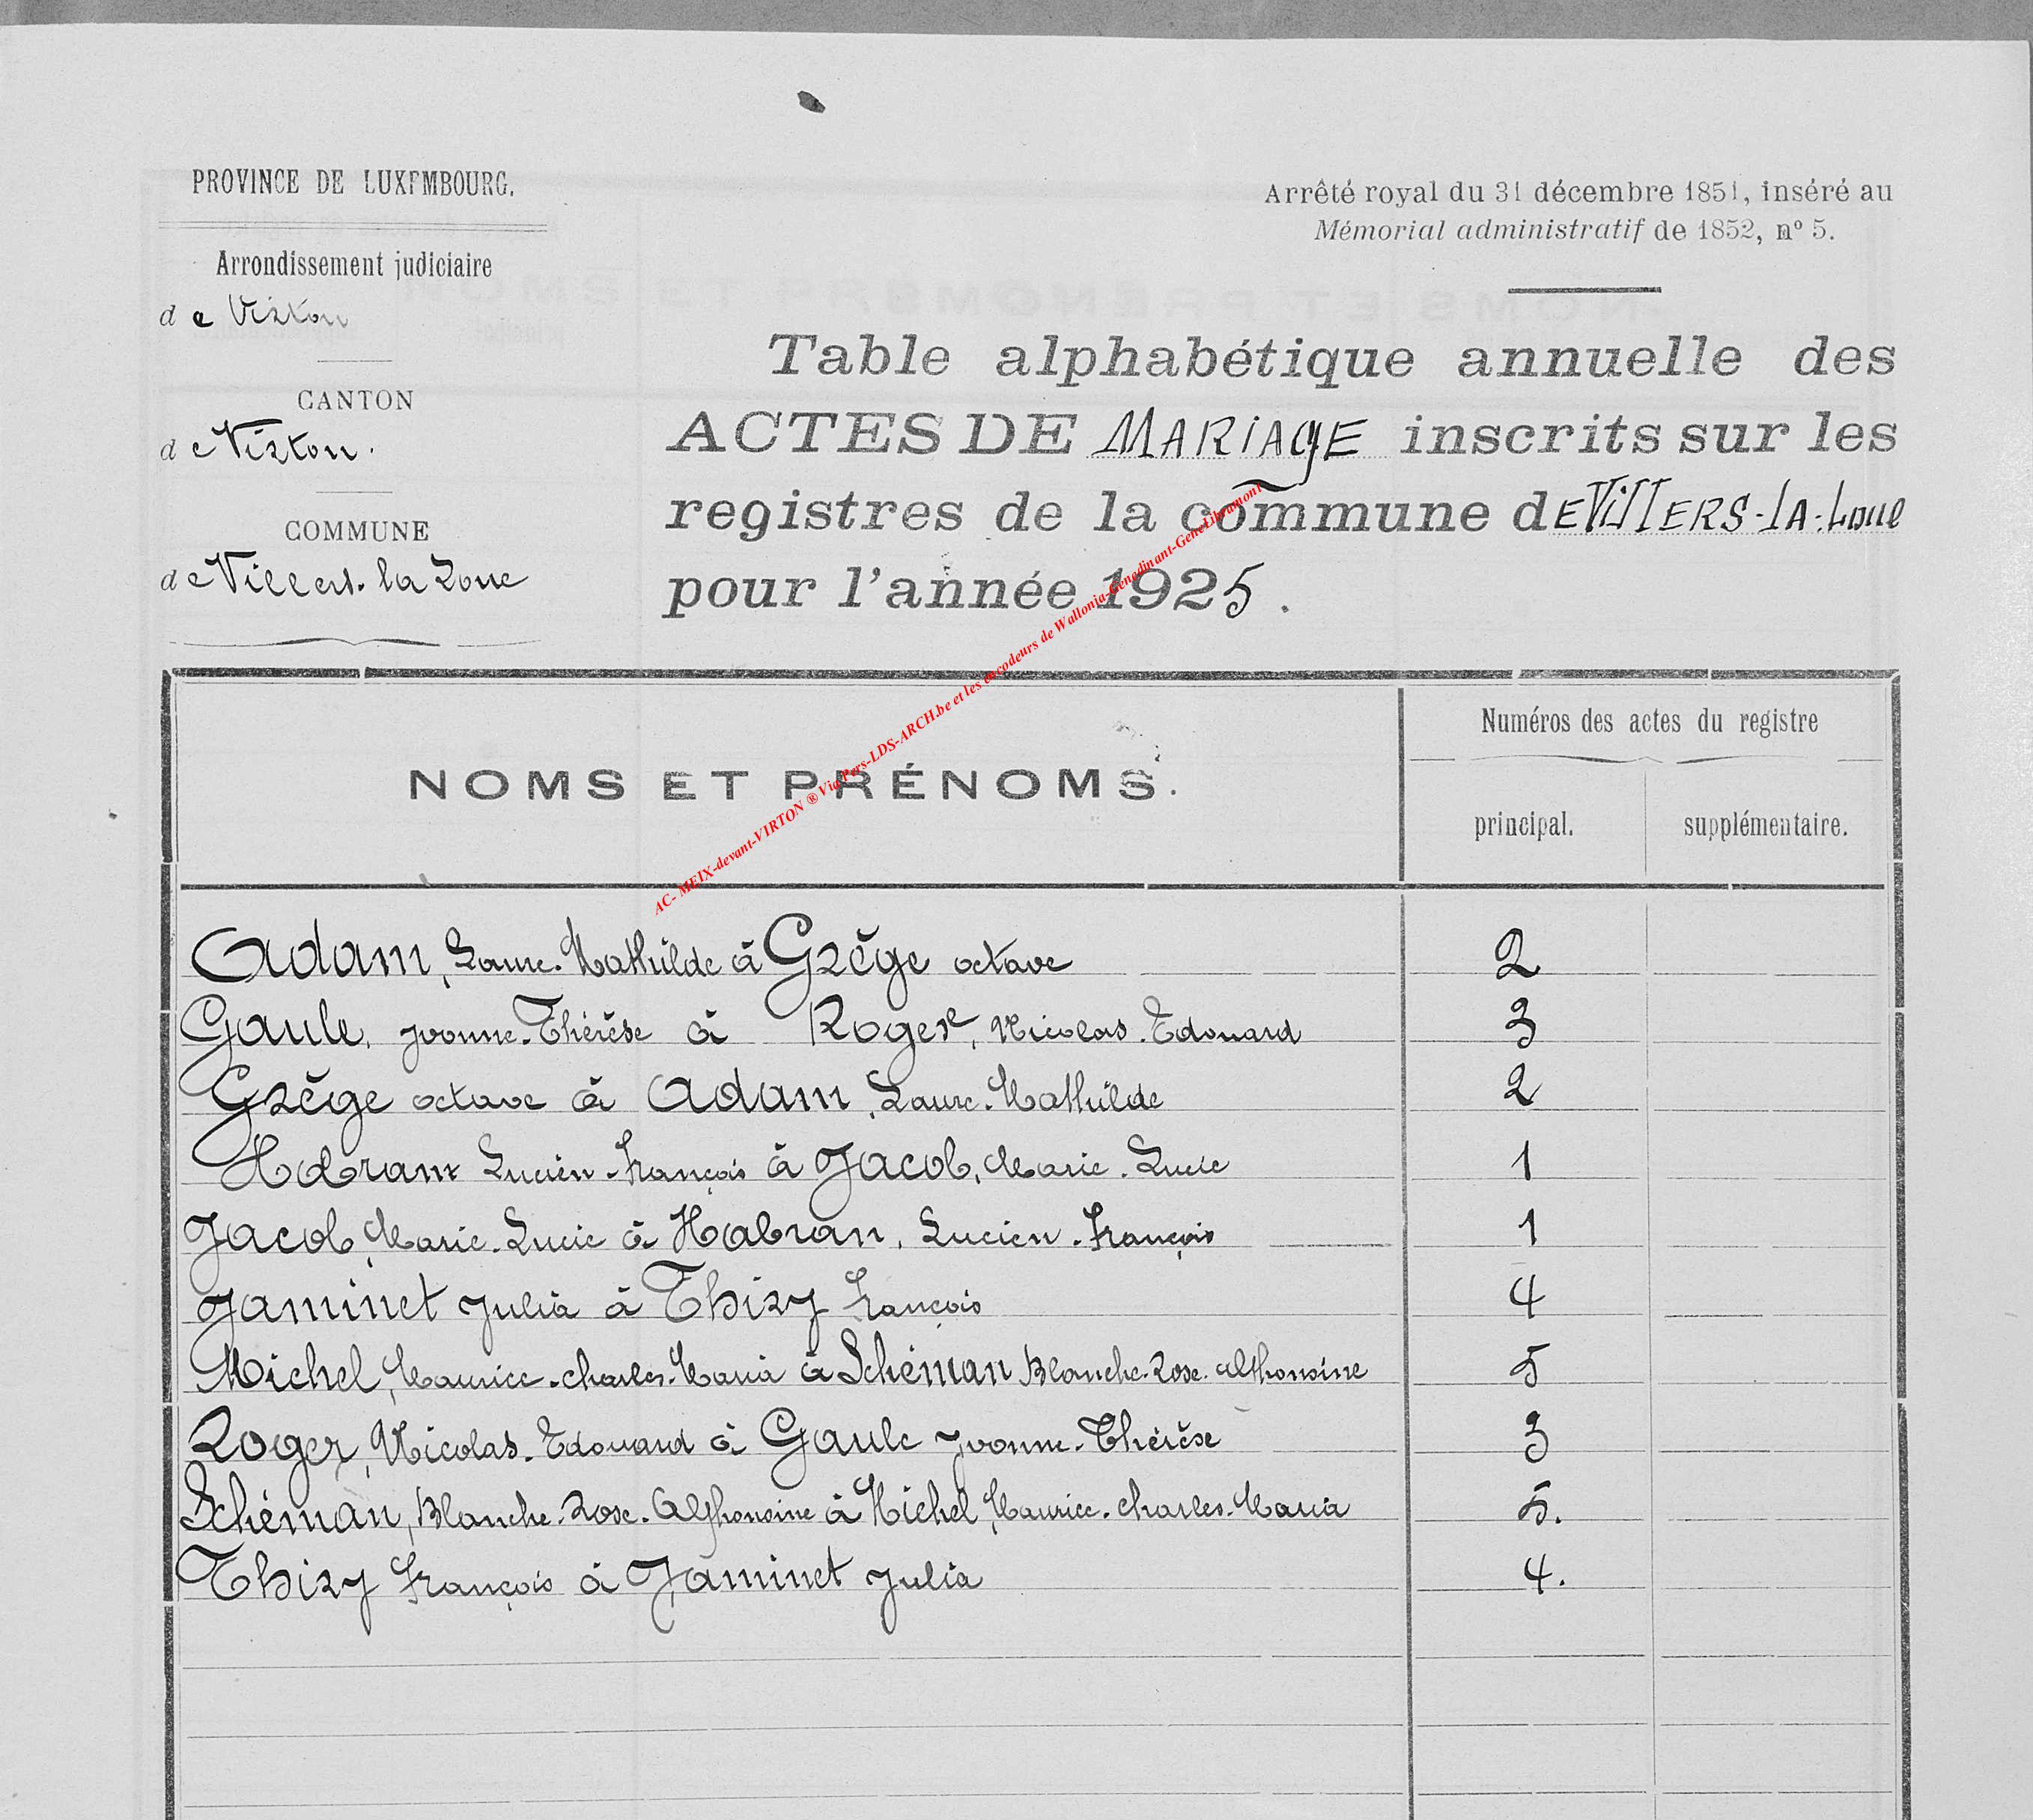 PROVINCE DE LUXEMBOURG.
Arrondissement judiciaire
de Virton
CANTON
de Virton.
COMMUNE
de Villers-la Loue
Arrêté royal du 31 décembre 1851, inséré au
Mémorial administratif de 1852, nº 5.
Table alphabétique annuelle des
ACTES DE MARIAGE inscrits sur les
registres de la commune dE VillERS-lA-Loue
pour l'année 1925.
AC- MEIX-devant-VIRTON ® Via Pers-LDS-ARCH.be et les encodeurs de Wallonia-Genedinant-GeneLibramont
NOMS ET PRÉNOMS.
Numéros des actes du registre
principal. supplémentaire.
Adam, Laure-Mathilde à Grège octave 2
Gaule, yvonne-Thérèse à Roger, Nicolas-Edouard 3
Grège octave à Adam, Laure-Mathilde 2
Habran Lucien-François à Jacob, Marie-Lucie 1
Jacob, Marie-Lucie à Habran, Lucien-François 1
Jaminet Julia à Thiry François 4
Michel, Maurice-charles-Maria à Schéman Blanche-Rose-Alphonsine 5
Roger, Nicolas-Edouard à Gaule yvonne-Thérèse 3
Schéman, Blanche-Rose-Alphonsine à Michel, Maurice-charles-Maria 5.
Thiry François à Jaminet Julia 4.